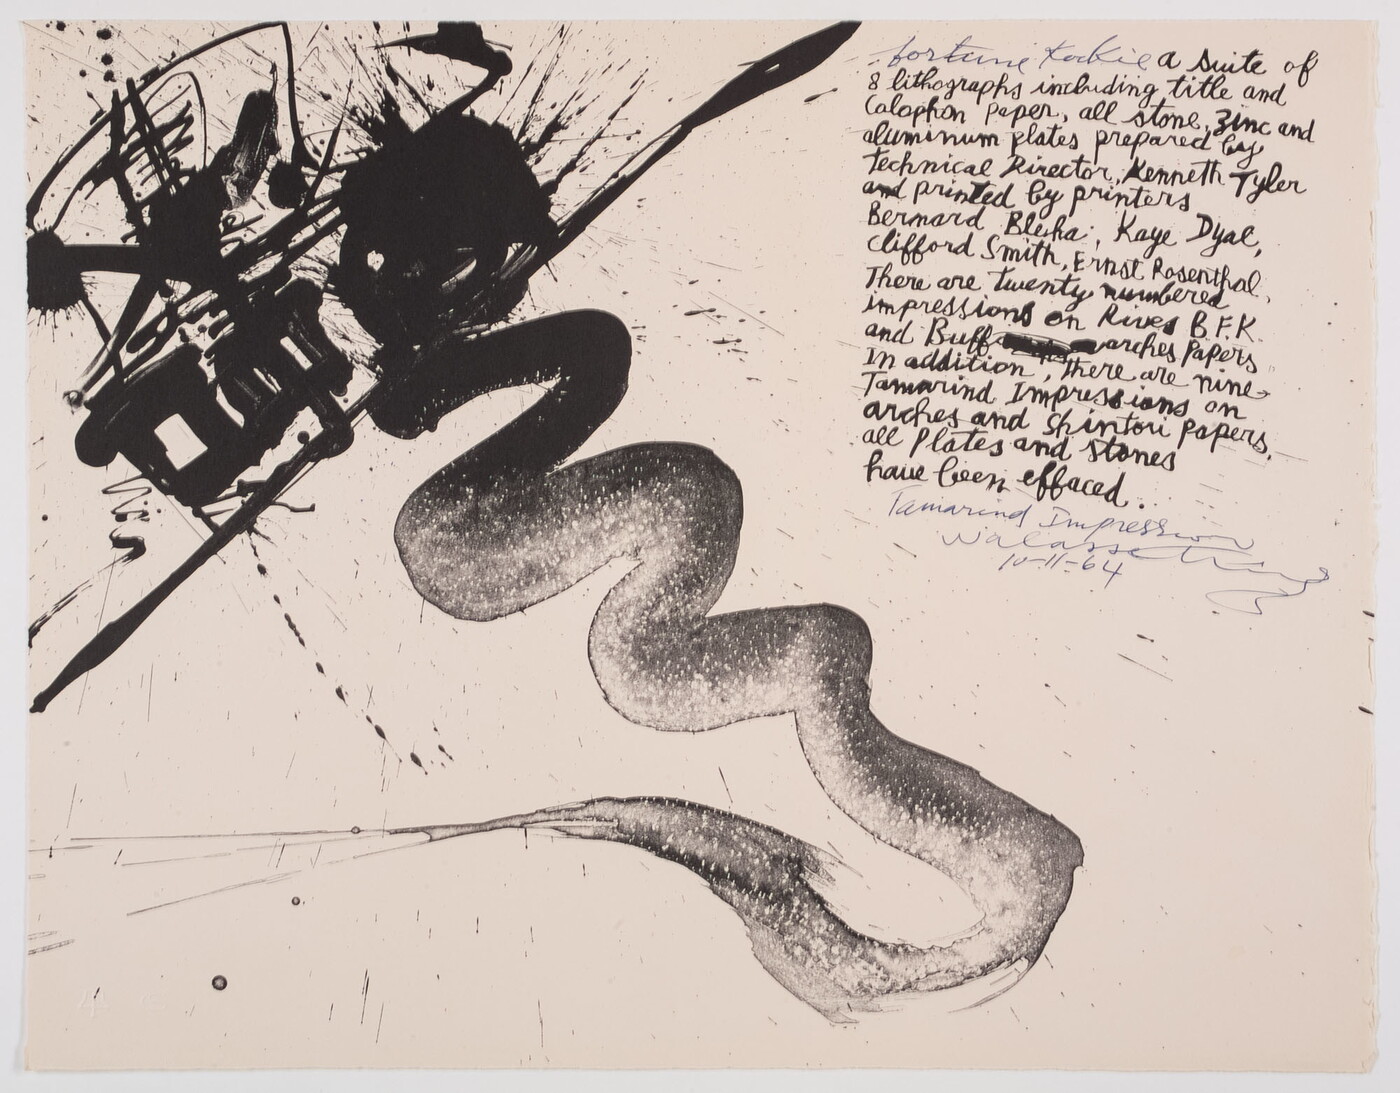 fortune kookie a suite of
8 lithographs including title and
Colophon paper, all stone, zinc and
aluminum plates prepared by
Technical Director, Kenneth Tyler
and printed by printers
Bernard Bleha, Kaye Dyal,
Clifford Smith, Ernst Rosenthal.
There are twenty numbered
impressions on Rives B.F.K.
and Buff arches papers
In addition, there are nine
Tamarind Impressions on
arches and Shintori papers.
all Plates and stones
have been effaced.
Tamarind Impression
Walasse Ting
10-11-64